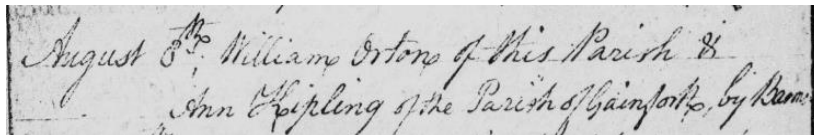 August 8th, William Orton of this Parish &
Ann Kipling of the Parish of Gainforth, by Banns